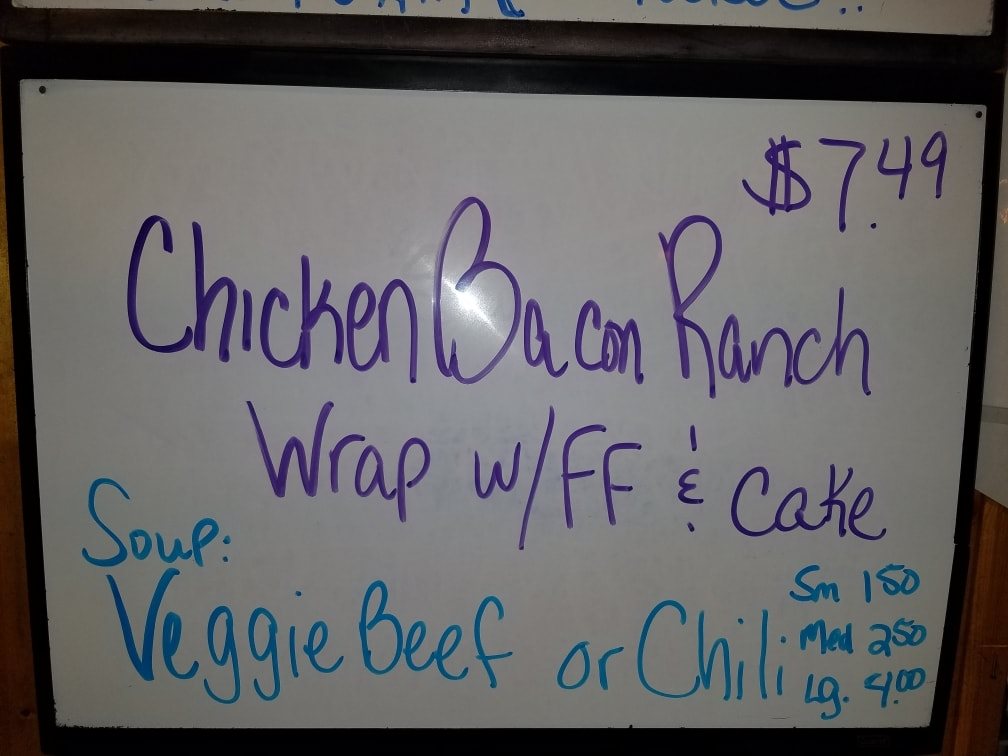 $7.49
Chicken Bacon Ranch
Wrap w/FF & Cake
Soup:
Veggie Beef or Chili
Sm 150
Med 250
Lg. 4.00